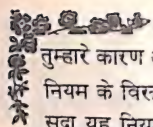 तुम्हारे कारण
नियम के विरु
सदा यह निय